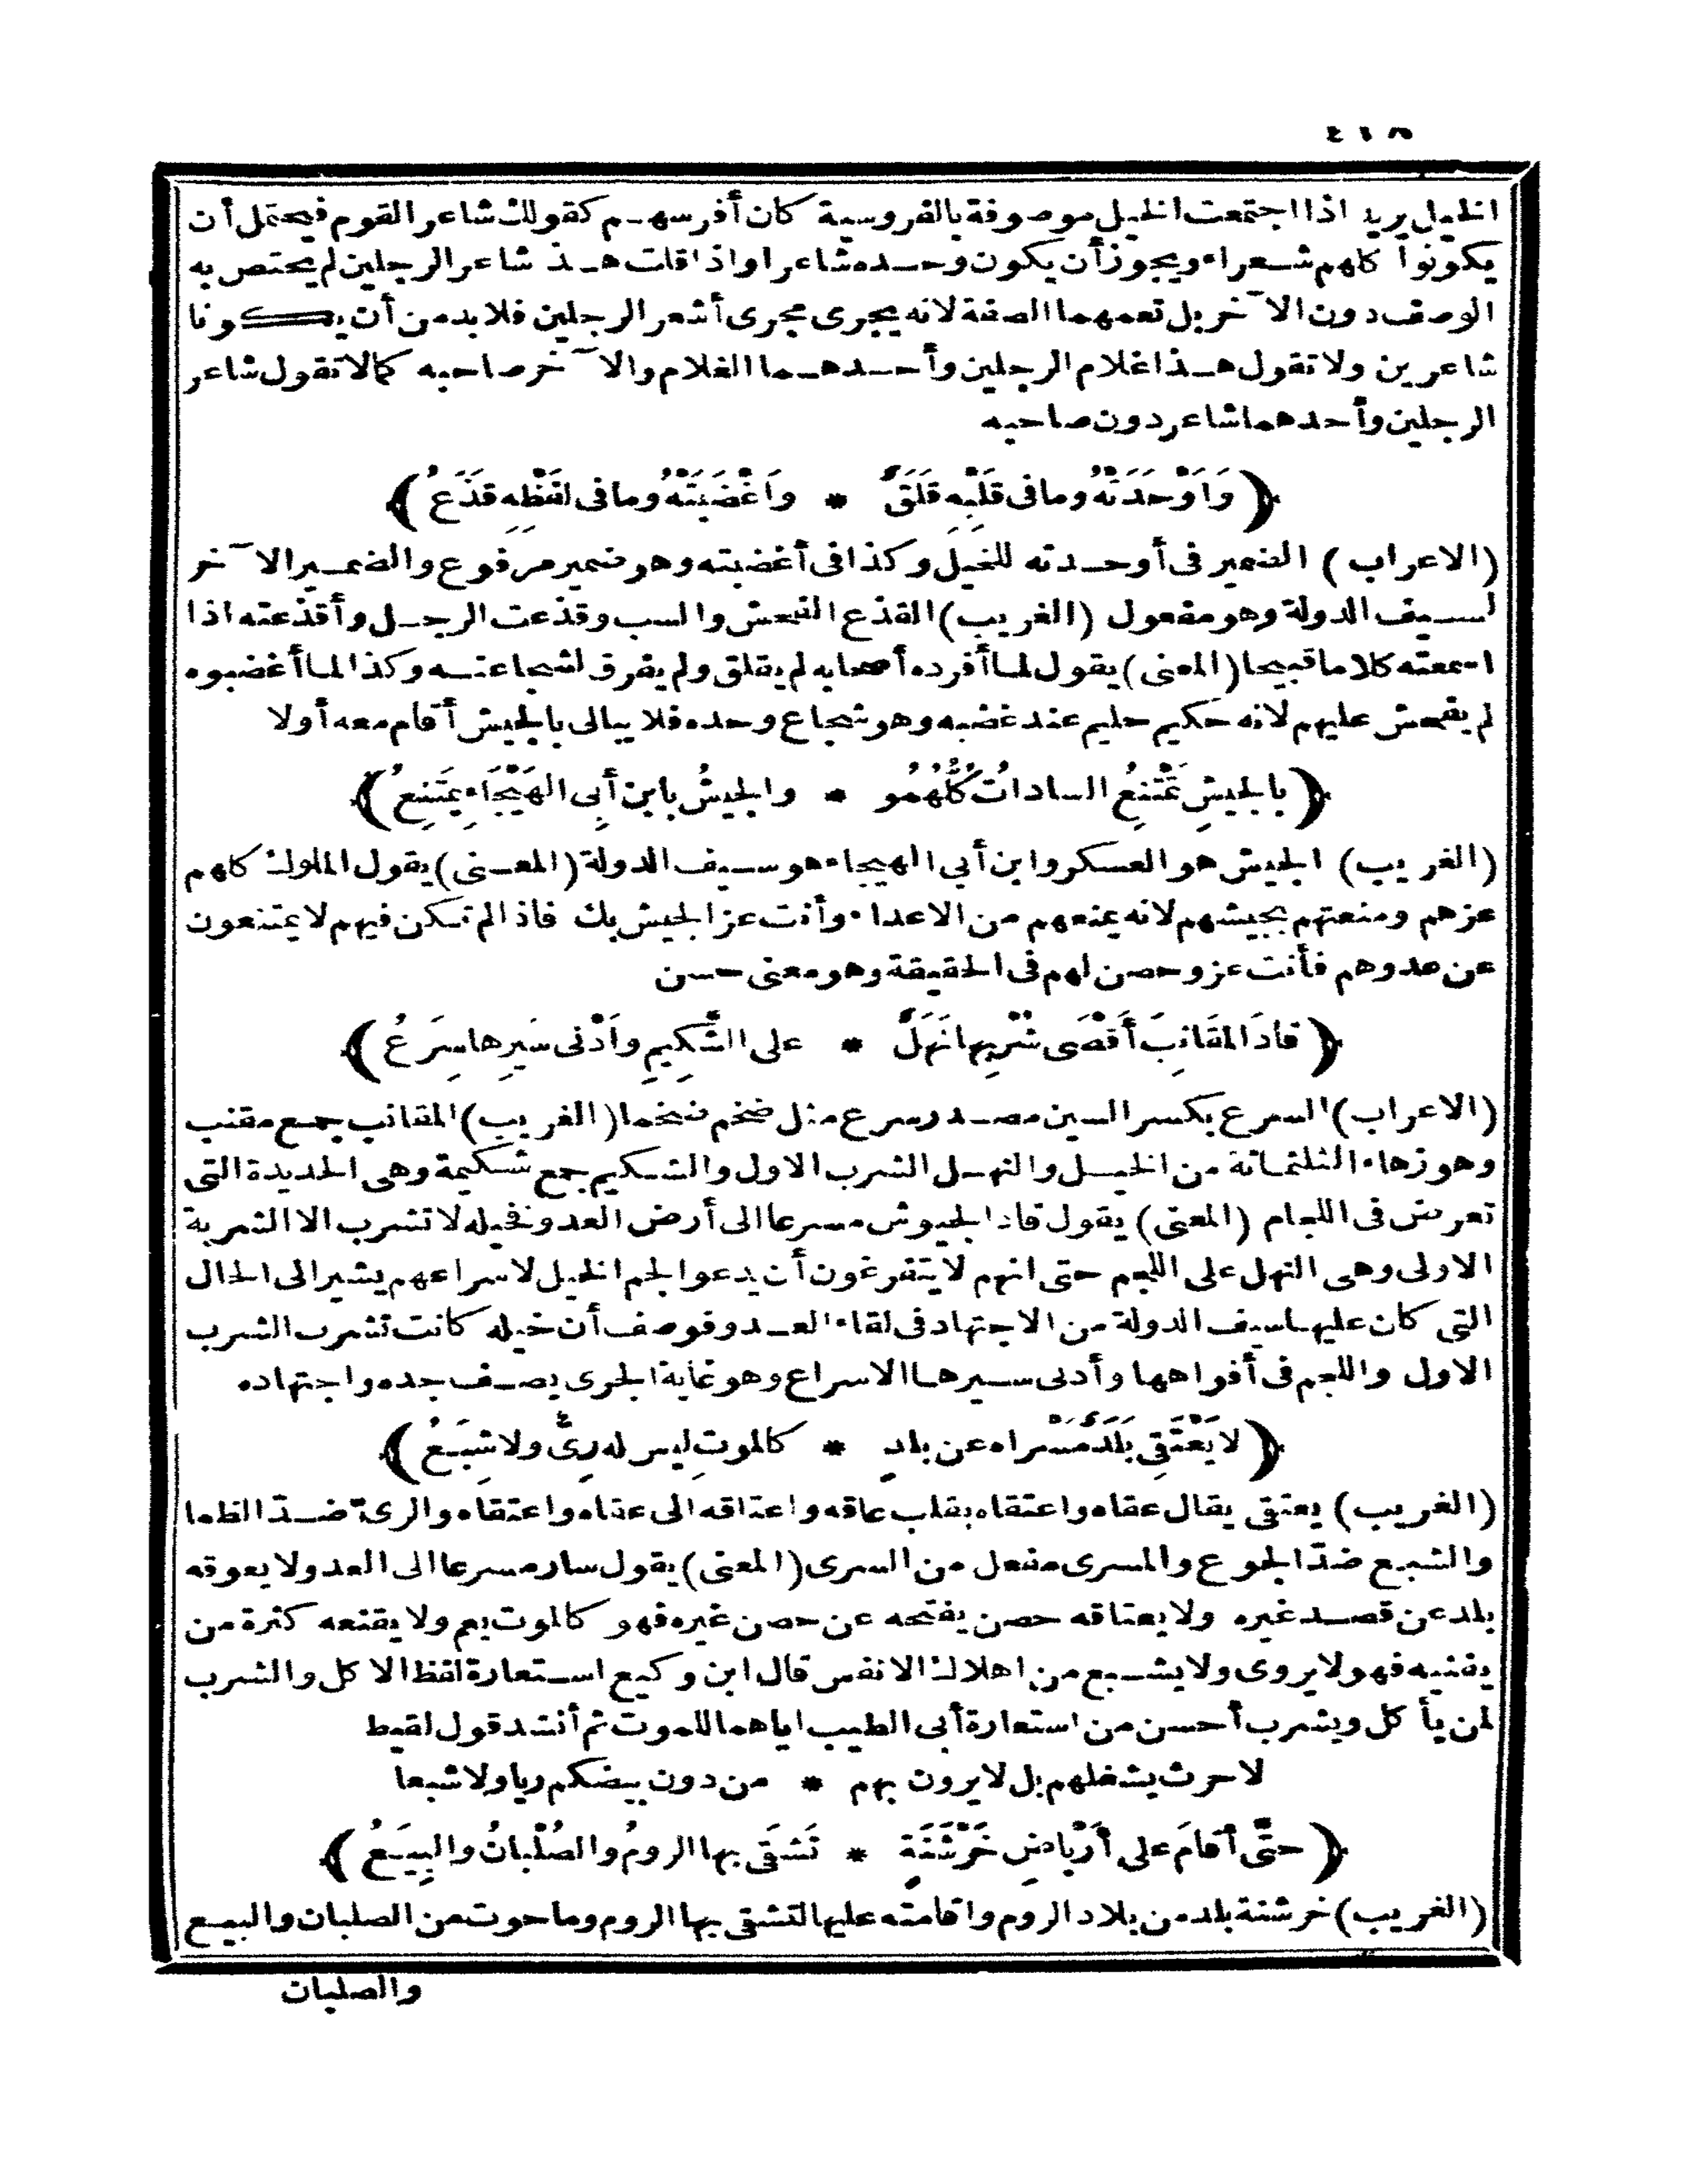 ٤١٨
الخيل يريد اذا اجتمعت الخيل موصوفة بالفروسية كان أفرسهم كقولك شاعر القوم فيحتمل أن
يكونوا كلهم شعراء ويجوز أن يكون وحده شاعرا واذا قلت هذ شاعر الرجلين لم يختص به
الوصف دون الآخر بل تعمهما الصفة لانه يجرى مجرى أشعر الرجلين فلا بد من أن يكونا
شاعرين ولا تقول هذا غلام الرجلين وأحدهما الغلام والآخر صاحبه كما لا تقول شاعر
الرجلين وأحدهما شاعر دون صاحبه
﴿وَأَوْحَدَتْهُ وما فى قَلْبِهِ قَلَقٌ * وأَغْضَبَتْهُ وما فى لفْظِهِ قَذَعُ﴾
(الاعراب) الضمير فى أوحدته للخيل وكذا فى أغضبته وهو ضمير مرفوع والضمير الآخر
لسيف الدولة وهو مفعول (الغريب) القذع الفحش والسب وقذعت الرجل وأقذعته اذا
اسمعته كلاما قبيحا (المعنى) يقول لما أفرده أصحابه لم يقلق ولم يفرق لشجاعته وكذا لما أغضبوه
لم يفحش عليهم لانه حكيم حليم عند غضبه وهو شجاع وحده فلا يبالى بالجيش أقام معه أولا
﴿بالجيشِ تَمْتَنِعُ الساداتُ كُلُّهُمُو * والجيشُ بابن أبى الهَيْجَاءِ يَمْتَنِعُ﴾
(الغريب) الجيش هو العسكر وابن أبى الهيجاء هو سيف الدولة (المعنى) يقول الملوك كلهم
عزهم ومنعتهم بجيشهم لانه يمنعهم من الاعداء وأنت عز الجيش بك فاذا لم تكن فيهم لا يمتنعون
عن عدوهم فأنت عز وحصن لهم فى الحقيقة وهو معنى حسن
﴿قادَ المَقَانِبَ أَقْصَى شُرْبِها نَهَلٌ * على الشَّكِيمِ وأَدْنى سَيرِها سِرَعُ﴾
(الاعراب) السرع بكسر السين مصدر سرع مثل ضخم ضخما (الغريب) المقانب جمع مقنب
وهو زهاء الثلثمائة من الخيل والنهل الشرب الاول والشكيم جمع شكيمة وهى الحديدة التى
تعرض فى اللجام (المعنى) يقول قاد الجيوش مسرعا الى أرض العدو فخيله لا تشرب الا الشربة
الاولى وهى النهل على اللجم حتى انهم لا يتفرغون أن يدعوا لجم الخيل لاسراعهم يشير الى الحال
التى كان عليها سيف الدولة من الاجتهاد فى لقاء العدو فوصف أن خيله كانت تشرب الشرب
الاول واللجم فى أفواهها وأدنى سيرها الاسراع وهو غاية الجرى يصف جده واجتهاده
﴿لا يَعْتَقِى بَلَدٌ مَسْراه عن بلدٍ * كالموتِ ليس له رِىٌّ ولا شِبَعُ﴾
(الغريب) يعتقى يقال عقاه واعتقاه بقلب عاقه واعتاقه الى عقاه واعتقاه والرىّ ضدّ الظما
والشبع ضدّ الجوع والمسرى مفعل من السرى (المعنى) يقول سار مسرعا الى العدو لا يعوقه
بلد عن قصد غيره ولا يعتاقه حصن يفتحه عن حصن غيره فهو كالموت يعم ولا يقنعه كثرة من
يفنيه فهو لا يروى ولا يشبع من اهلاك الانفس قال ابن وكيع استعارة لفظ الاكل والشرب
لمن يأكل ويشرب أحسن من استعارة أبى الطيب اياهما للموت ثم أنشد قول لقيط
لا حرث يشغلهم بل لا يرون بهم * من دون بيضكم ريا ولا شبعا
﴿حتَّى أقامَ على أَرْباضِ خَرْشَنَةٍ * تَشْقَى بها الرومُ والصُلْبانُ والبِيَعُ﴾
(الغريب) خرشنة بلد من بلاد الروم واقامته عليها لتشقى بها الروم وما حوت من الصلبان والبيع
والصلبان